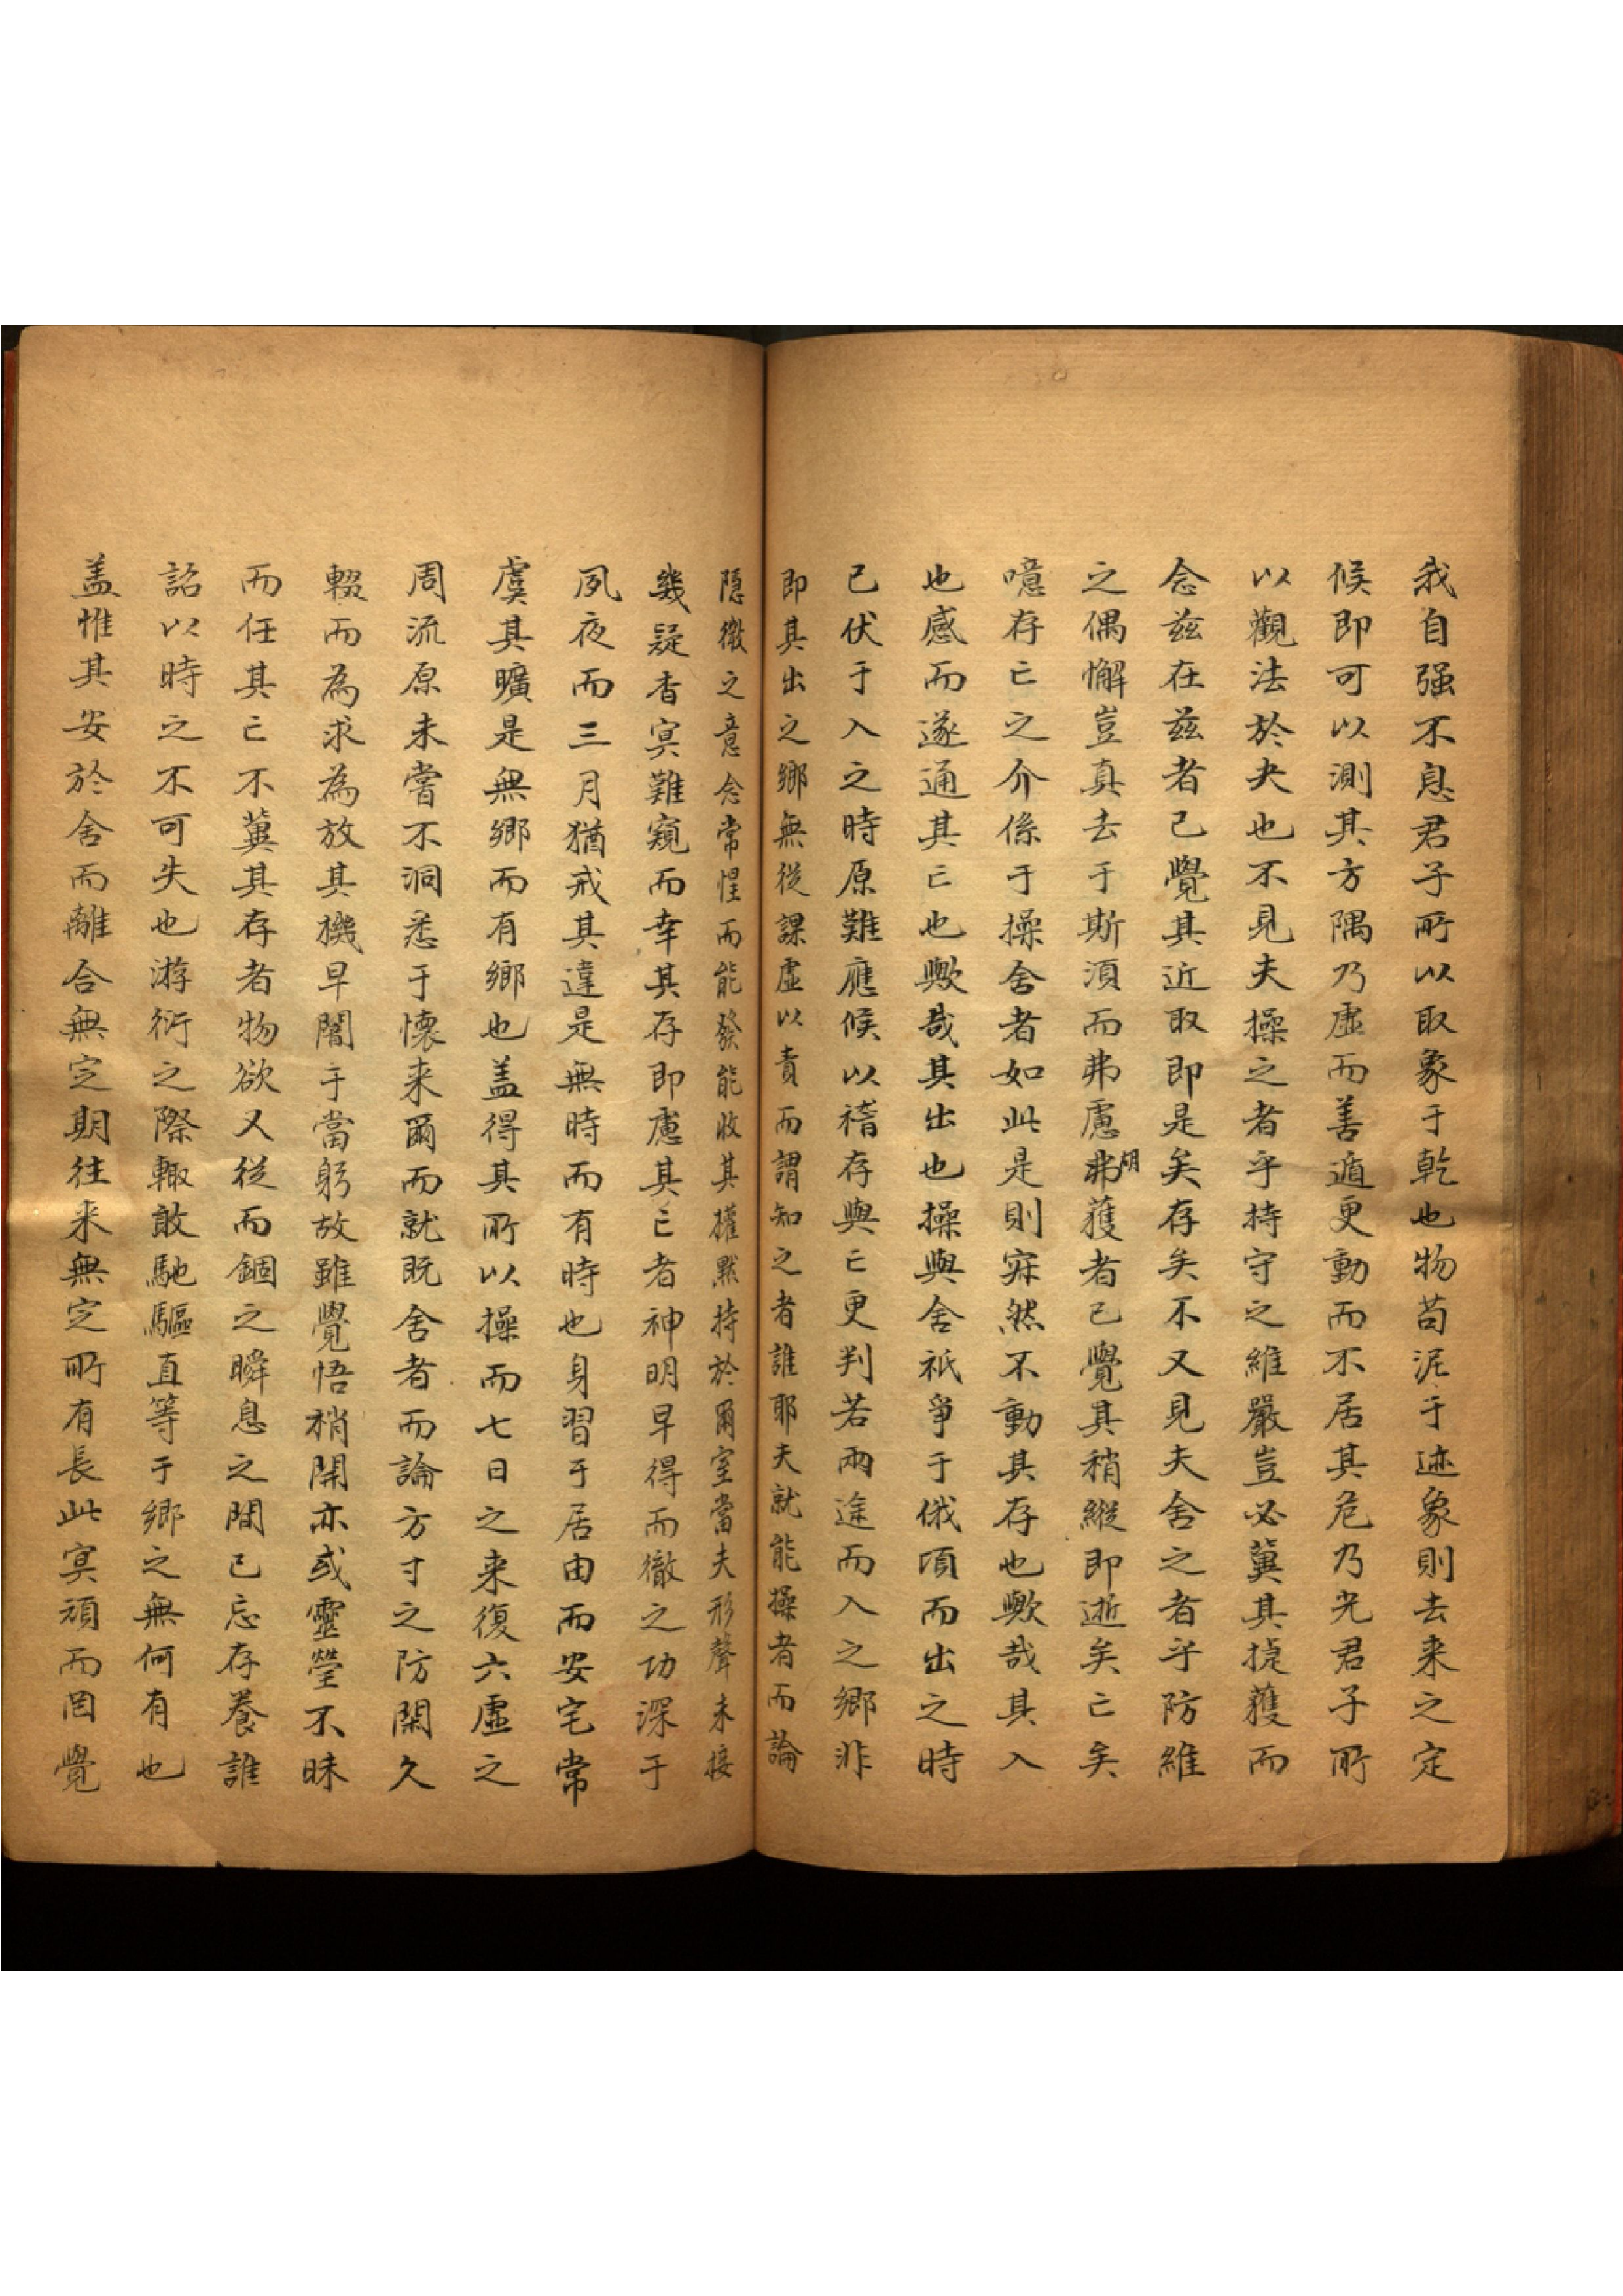 我自强不息君子所以取象于乾也物苟泥于迹象則去来之定
候即可以測其方隅乃虛而善遁更動而不居其危乃光君子所
以觀法於夬也不見夫操之者乎持守之維嚴豈必冀其捷獲而
念兹在兹者已覺其近取即是矣存矣不又見夫舍之者乎防維
之偶懈豈真去于斯須而弗慮弗胡獲者已覺其稍縱即逝矣亡矣
噫存亡之介係于操舍者如此是則寂然不動其存也歟哉其入
也感而遂通其亡也歟哉其出也操與舍祇爭于俄頃而出之時
已伏于入之時原難應候以稽存與亡更判若兩途而入之鄉非
即其出之鄉無從課虛以責而謂知之者誰耶夫就能操者而論
隱微之意念常惺而能發能收其權默持於爾室當夫形聲未接
幾疑杳冥難窺而幸其存即慮其亡者神明早得而徹之功深于
夙夜而三月猶戒其違是無時而有時也身習于居由而安宅常
虞其曠是無鄉而有鄉也盖得其所以操而七日之来復六虛之
周流原未嘗不洞悉于懷来爾而就既舍者而論方寸之防閑久
輟而為求為放其機早闇于當躬故雖覺悟稍開亦或靈瑩不昧
而任其亡不冀其存者物欲又從而錮之瞬息之間已忘存養誰
詔以時之不可失也游衍之際輙敢馳驅直等于鄉之無何有也
盖惟其安於舍而離合無定期往来無定所有長此冥頑而罔覺